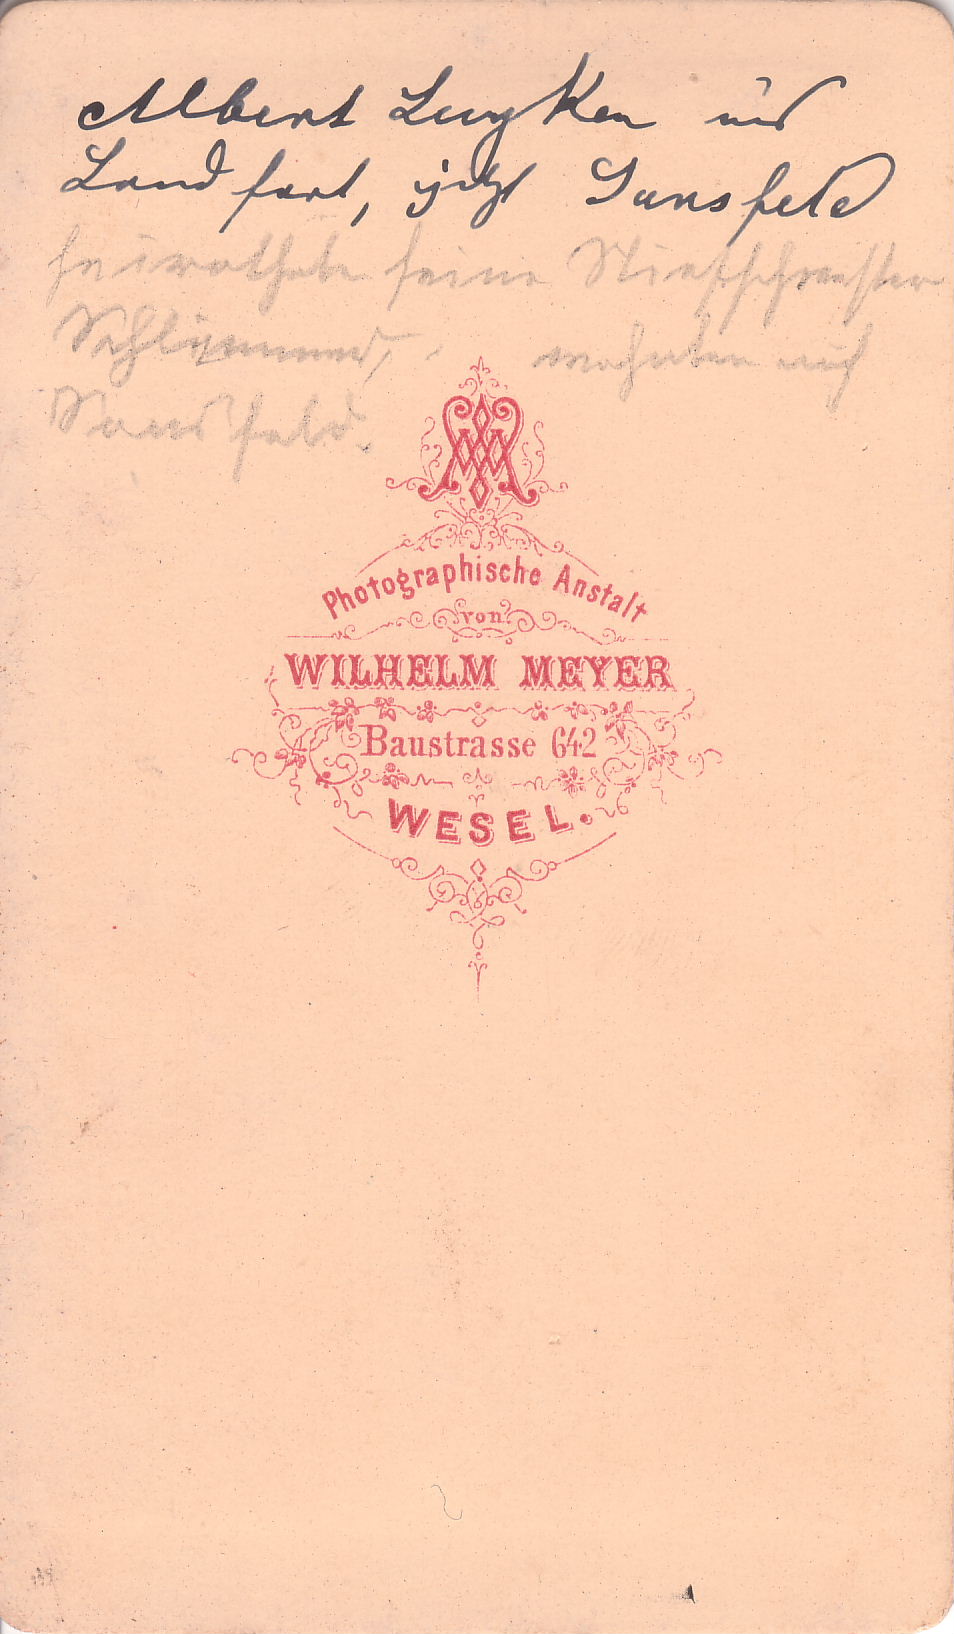 Albert Luyken
Landfort, jetzt Sonsfeld
heirathete seine Stiefschwester
wohnten auf
Sonsfeld.
Photographische Anstalt
von
WILHELM MEYER
Baustrasse 642
WESEL.